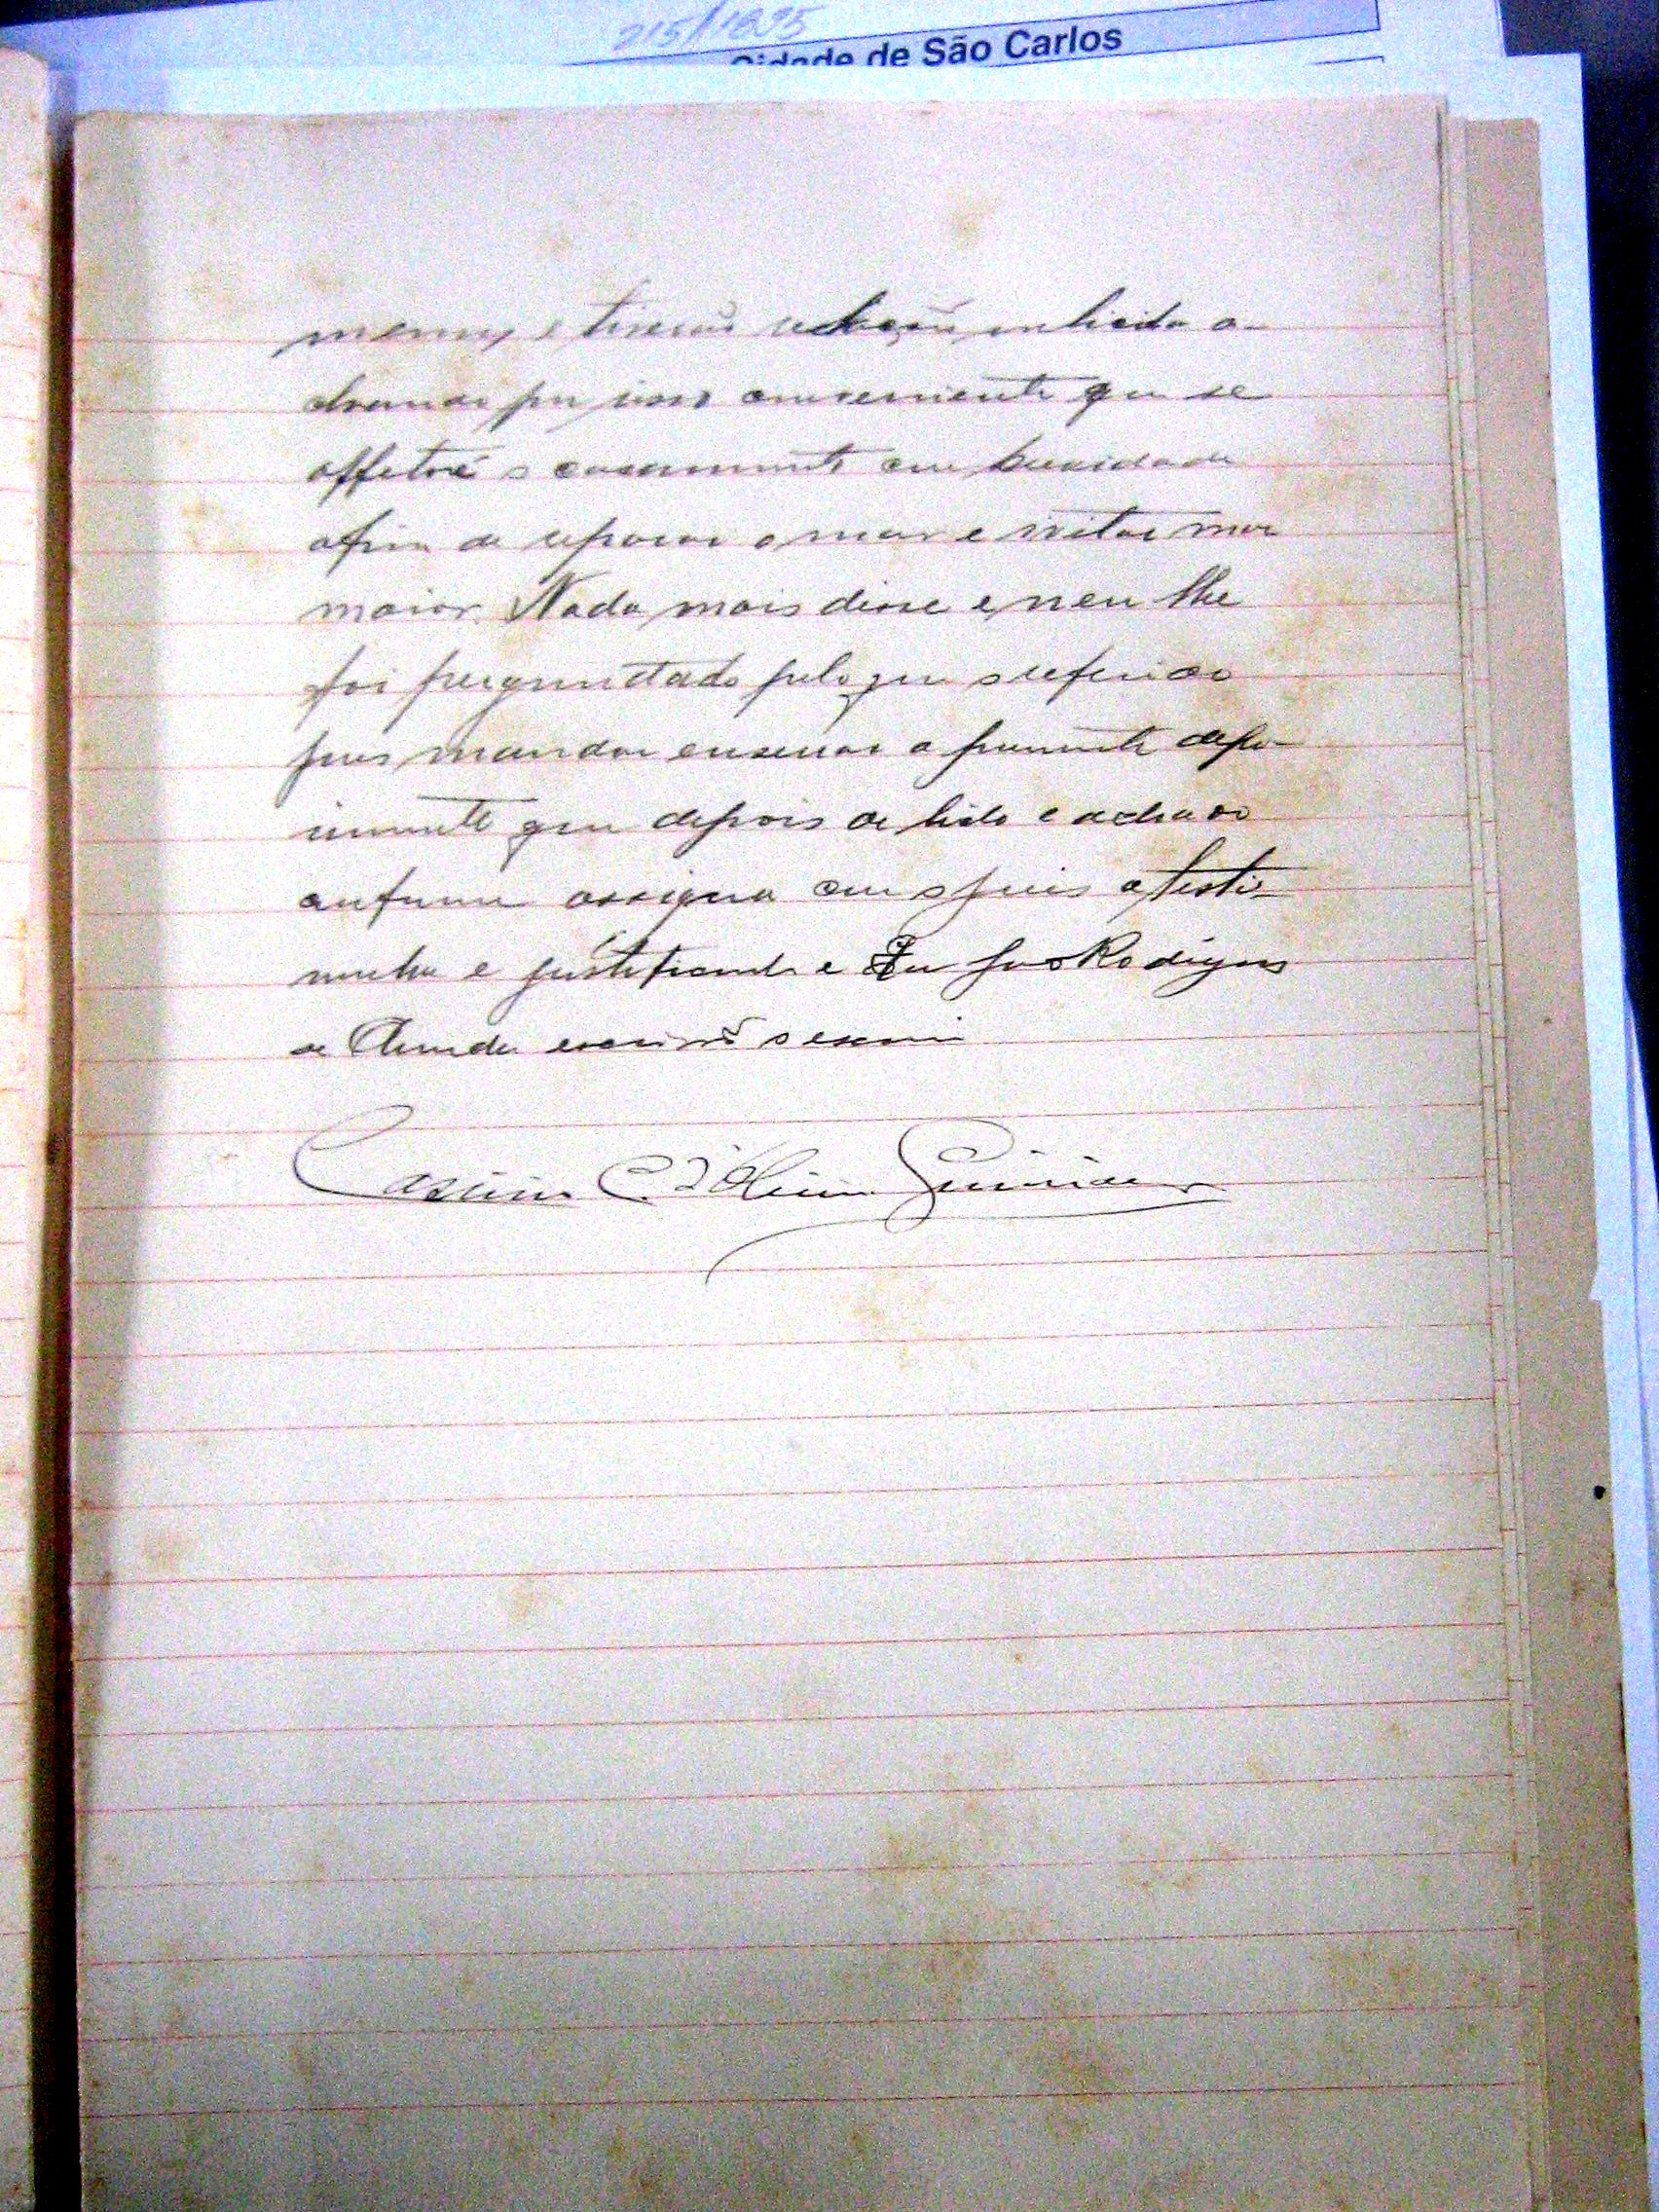 215/1895
Cidade de São Carlos
e tiverão relação illicita a-
chando por isso conveniente que se
effetue o casamento com brevidade
afim de reparar o mal e evitar mal
maior. Nada mais disse e nem lhe
foi perguntado pelo que o referido
juis mandou encerrar o presente depo-
imento que depois de lido e achado
conforme assigna com o juis a teste-
munha e justificante e Eu José Rodrigues
de Arruda escrivão o escrevi
C. d'Oliveira Guimarães